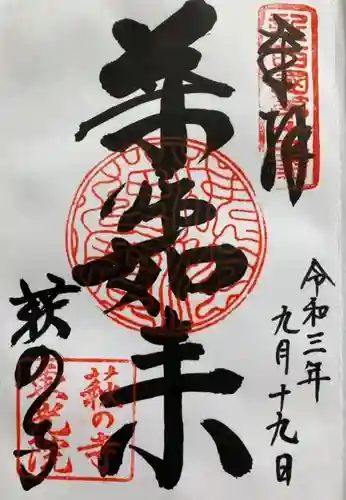 奉拝
令和三年
九月十九日
薬師如来
萩の寺
萩の寺
光院